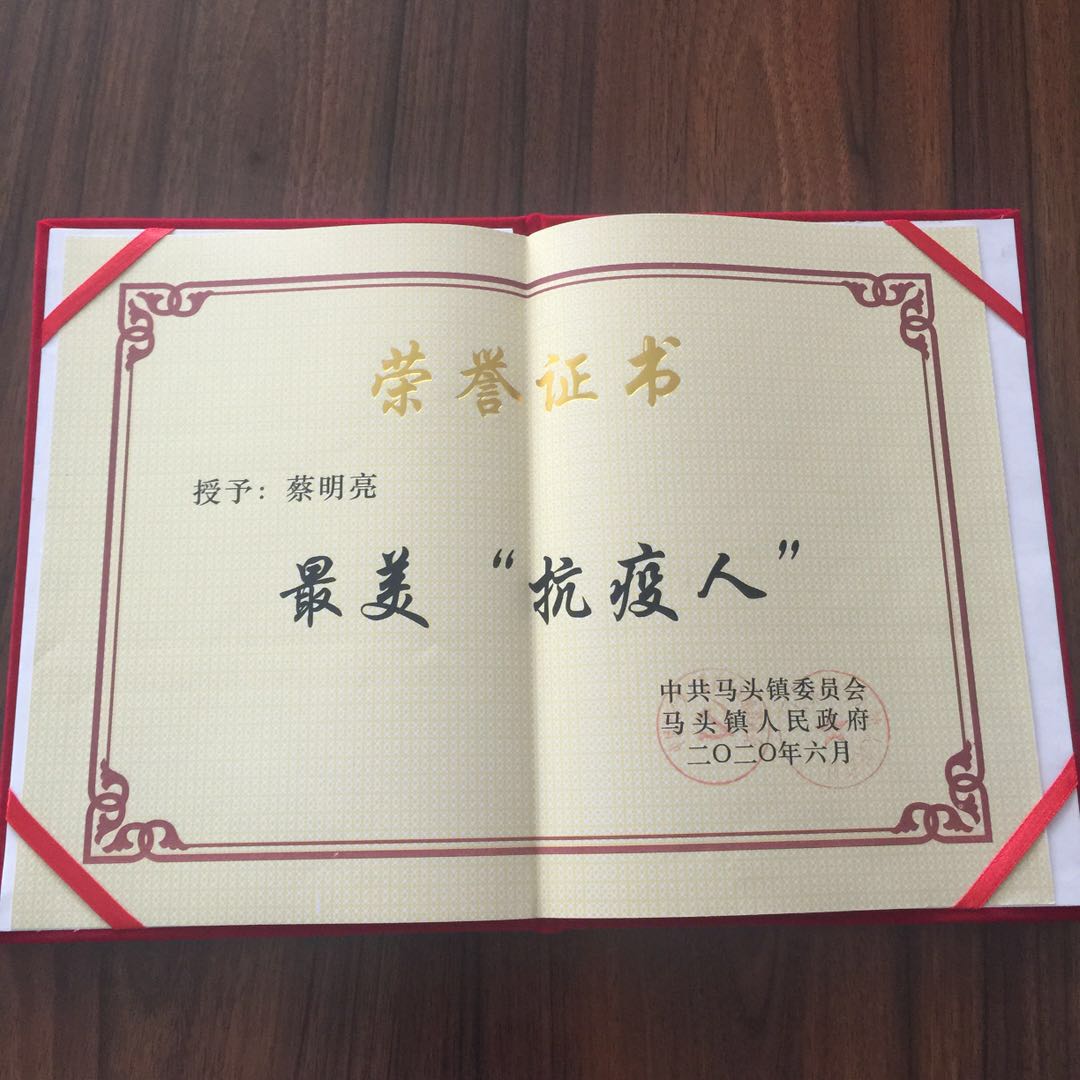 荣誉证书
授予：蔡明亮
最美“抗疫人”
中共马头镇委员会
马头镇人民政府
二〇二〇年六月